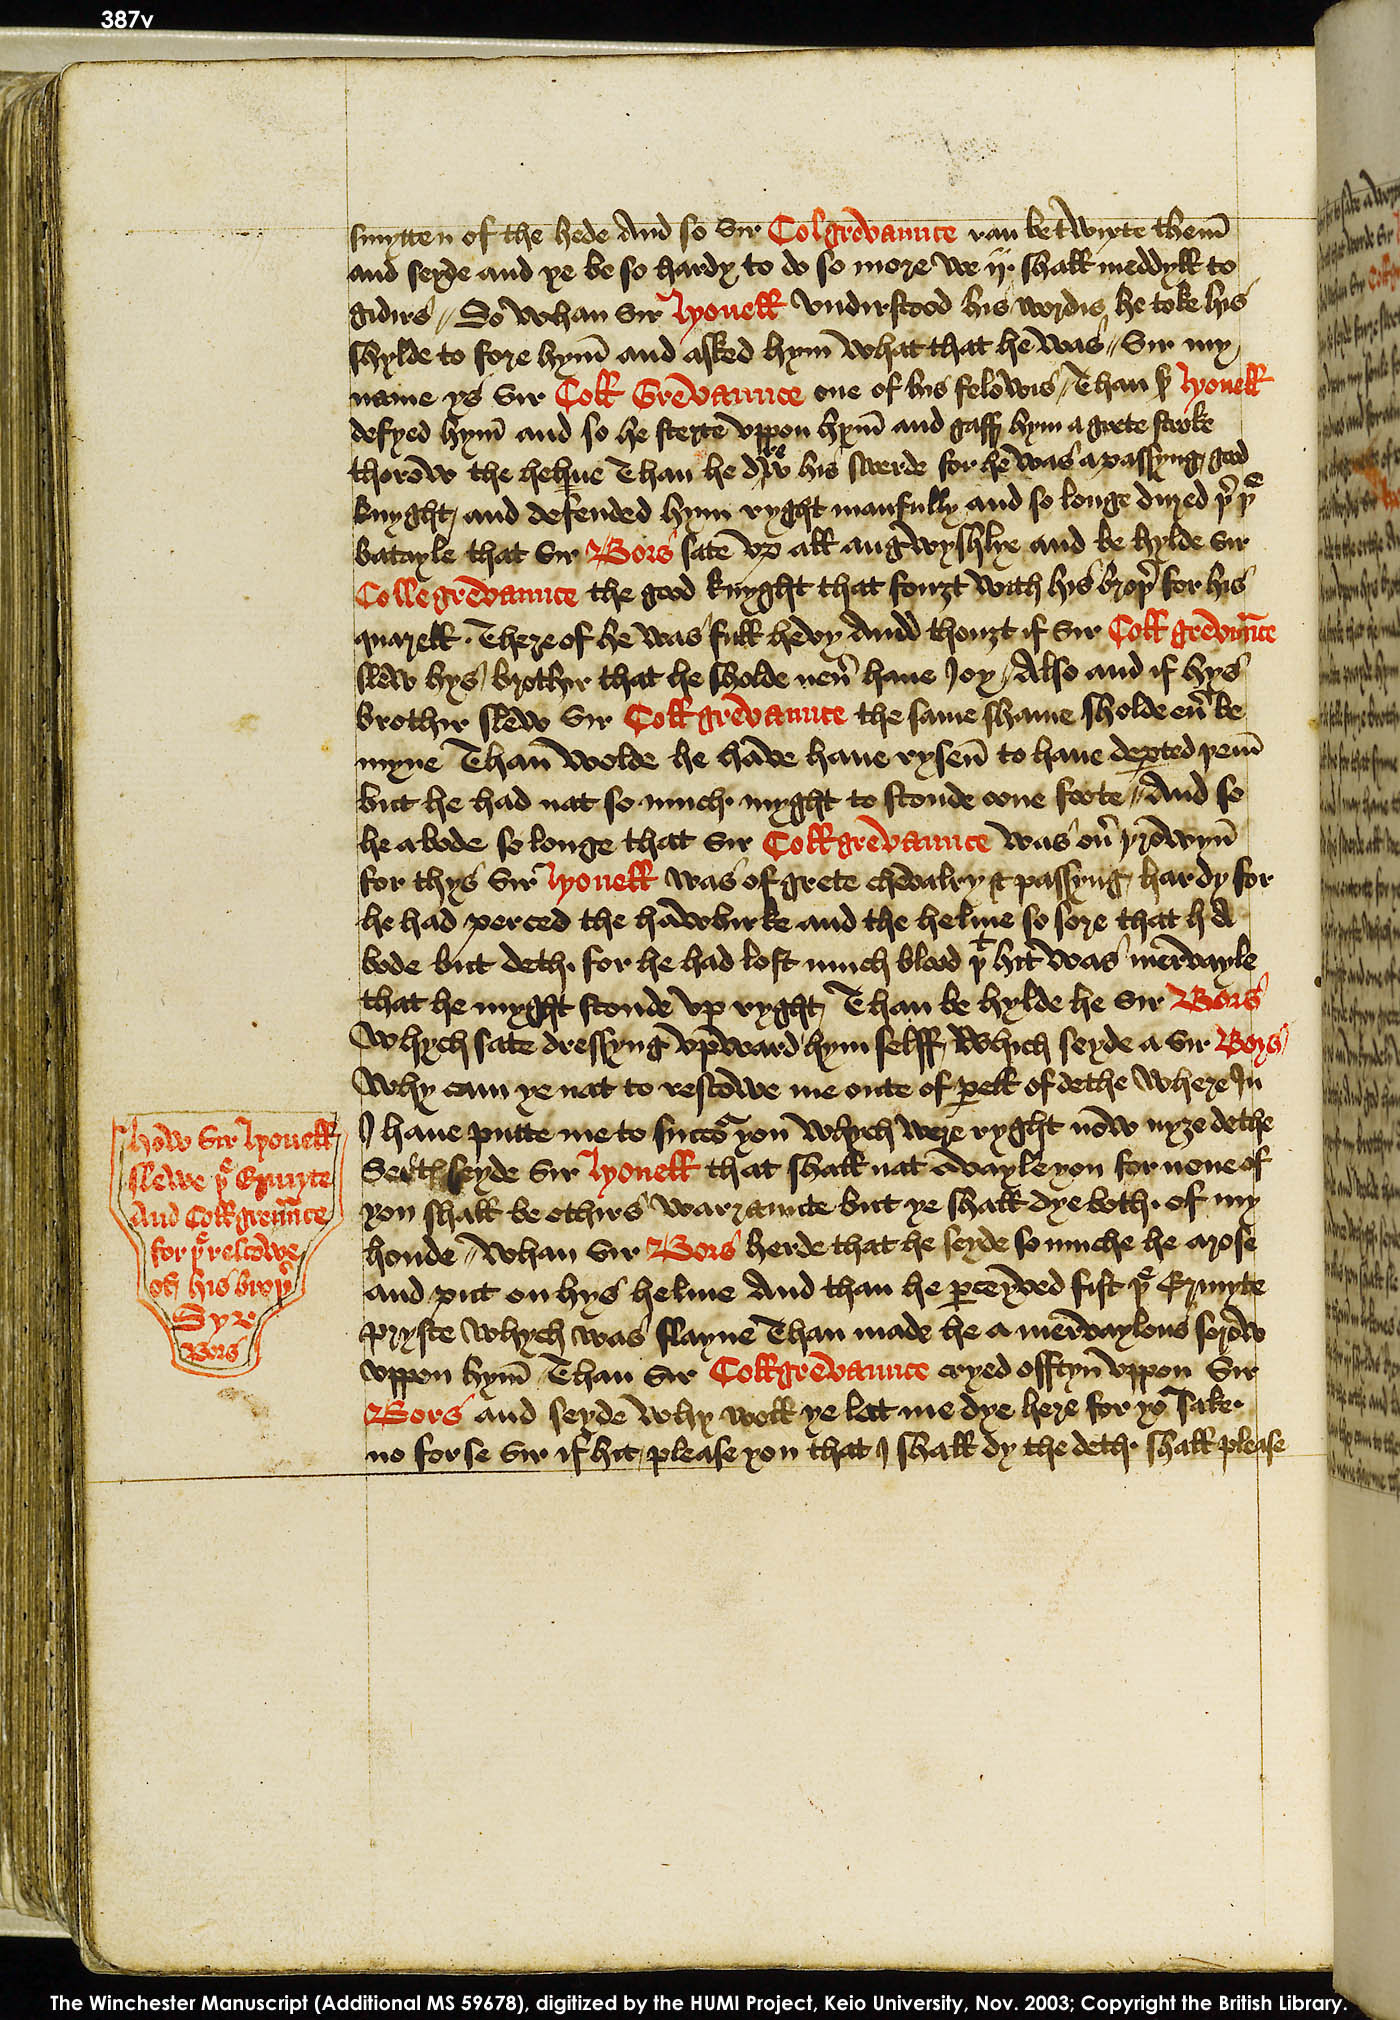 387v
smytten of the hede And so Sir Colgrevaunce ran be twyxte them̄
and seyde and ye be so hardy to do so more we ij shall meddyll to
gidirs // So whan Sir lyonell vndirstood his wordis he toke his
shylde to fore hym̄ and asked hym what that he was // Sir my
name ys Sir Coll Grevaunce one of his felowis / Than sr lyonell
defyed hym̄ and so he sterte vppon hym̄ and gaff hym a grete stroke
thorow the helme Than he drew his swerde for he was a passyng good
knyght / and defended hym ryght manfully and so longe dured þer þe
batayle that Sir Bors sate vp all angwyshlye and be hylde Sir
Colle grevaunce the good knyght that fouȝt with his broþer for his
quarell . There of he was full hevy And thouȝt if Sir Coll grevaūnce
slew hys brothir that he sholde neuer haue Joy / Also and if hys
brothir slew Sir Coll grevaunce the same shame sholde euer be
myne Than wolde he have haue rysen̄ to haue departed þem̄
but he had nat so much myght to stonde oone foote // And so
he a bode so longe that Sir Coll grevaunce was ouer þrowyn̄
for thys Sir lyonell was of grete chevalry & passyng hardy for
he had perced the hawbirke and the helme so sore that h A
bode but deth for he had lost much blood þt hit was mervayle
that he myght stonde vp ryght / Than be hylde he Sir Bors
Whych sate dressyng vpward hym selff / Which seyde a Sir Bors /
Why cam ye nat to rescowe me oute of perell of dethe Where In
I haue putte me to succour you whych were ryght now nyȝe dethe
Certes seyde Sir lyonell that shall nat avayle you for none of
you shall be othirs warraunte but ye shall dye both of my
honde // Whan Sir Bors herde that he seyde so muche he arose
and put on hys helme And than he perceyved fist þe Ermyte
pryste whych was slayne Than made he a mervaylous sorow
vppon hym̄ Than Sir Coll grevaunce cryed offtyn vppon Sir
Bors and seyde why woll ye let me dye here for your sake
no forse Sir if hit please you that I shall dy the deth shall please
how Sir lyonell
slewe þe Ermyte
And Coll greuaūnce
for þe rescowe
off his broþer
Syr
Bors
The Winchester Manuscript (Additional MS 59678), digitized by the HUMI Project, Keio University, Nov. 2003; Copyright the British Library.